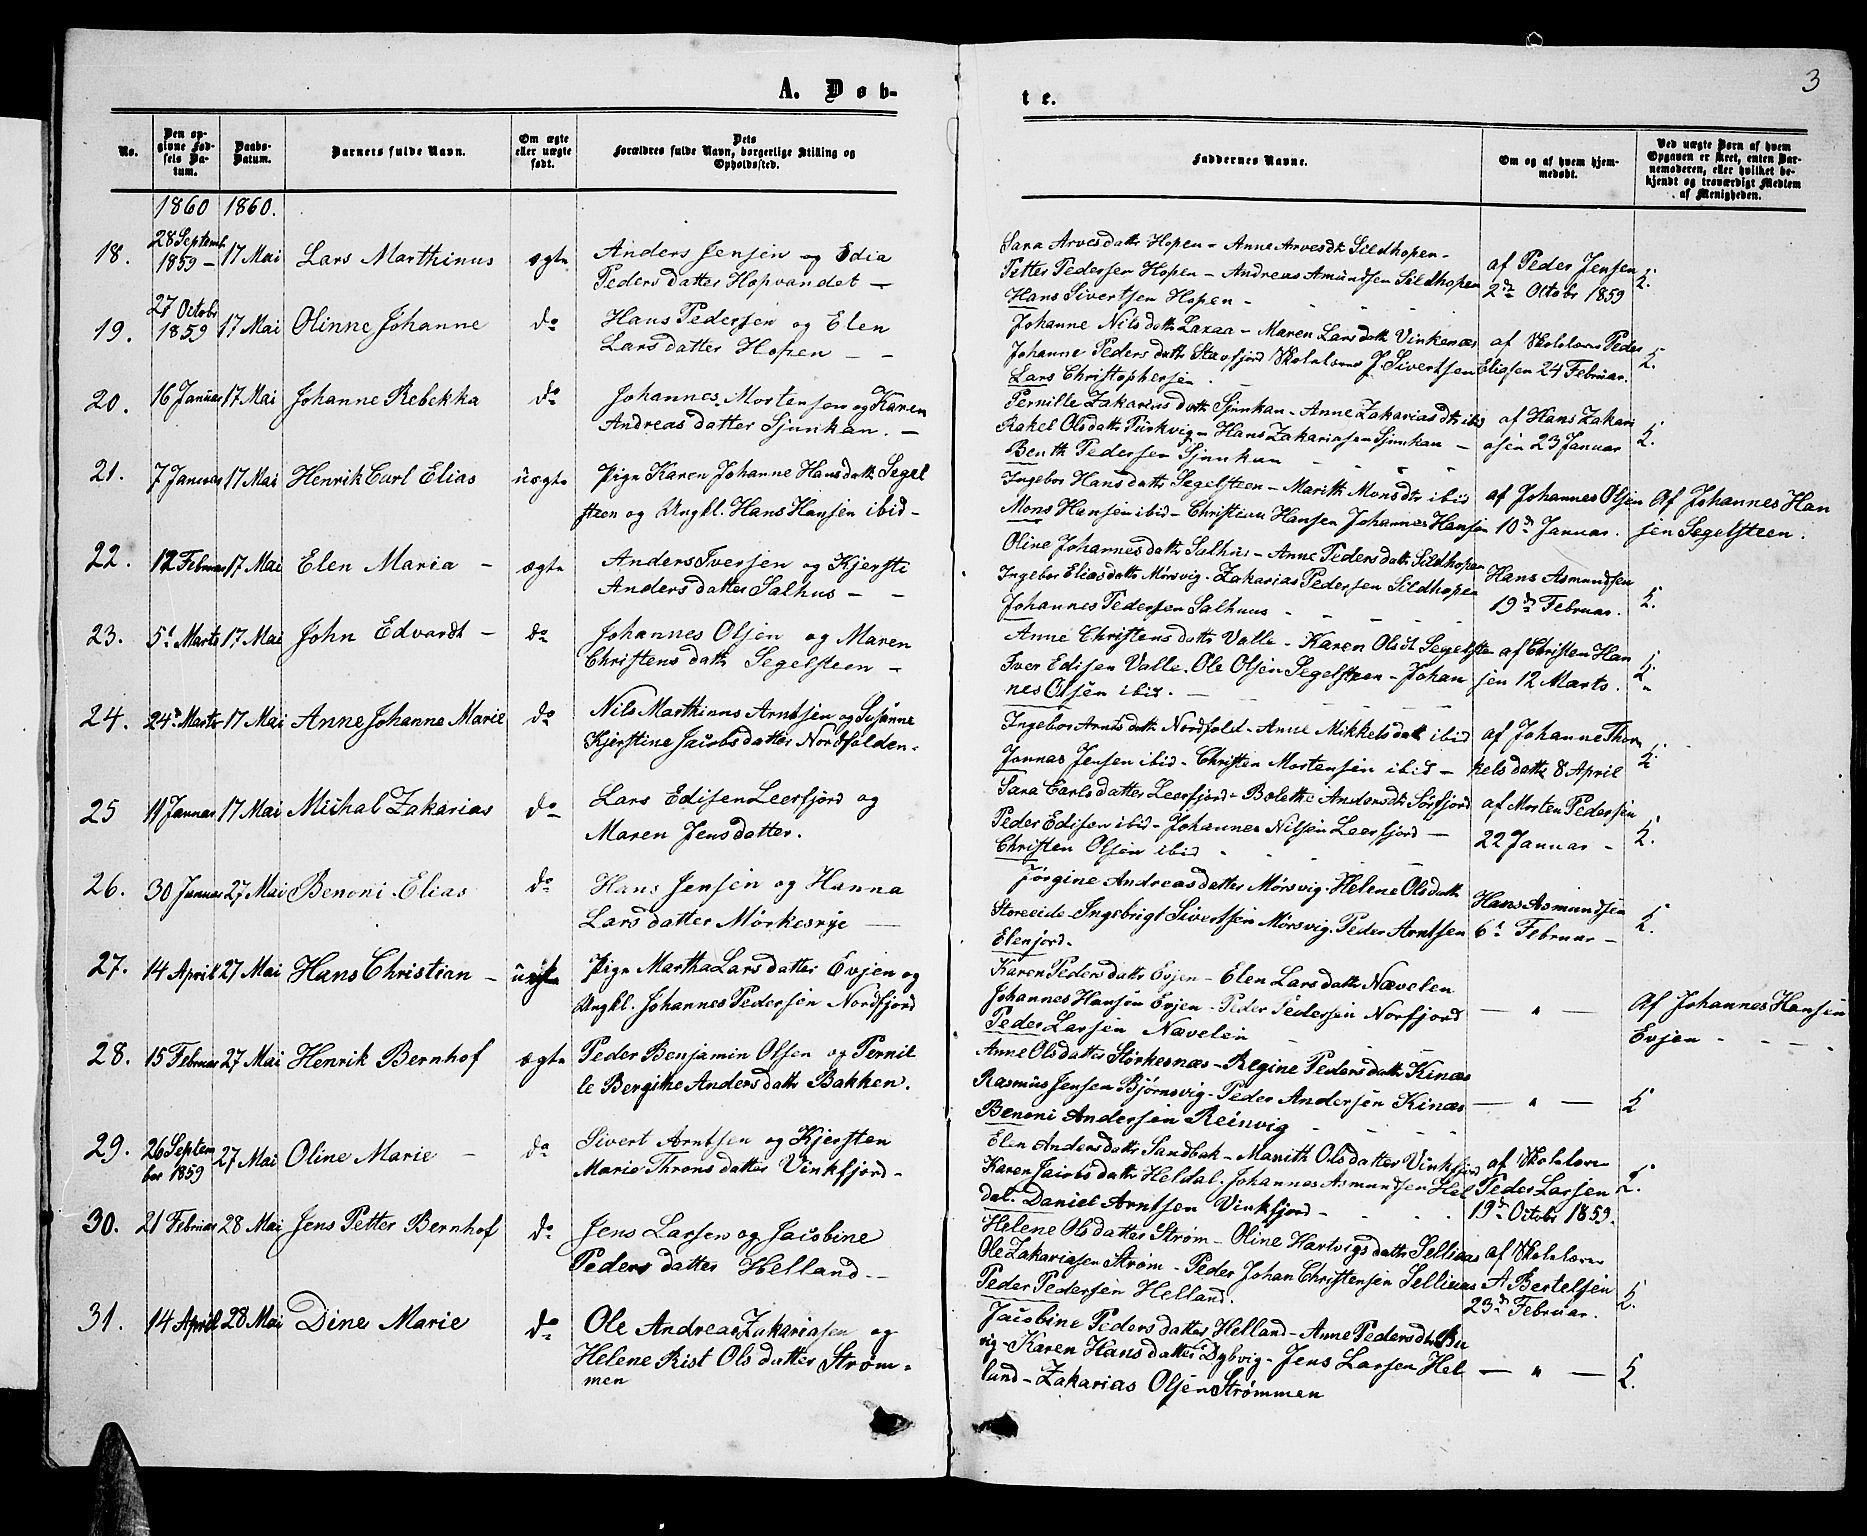 3
A. Døb-
te.
No.
Den op-
givne Fød-
sels Da-
tum.
Daabs-
Datum.
Barnets fulde Navn.
Om ægte
eller uægte
født.
Dets
Forældres fulde Navn, borgerlige Stilling og
Opholdssted.
Faddernes Navne.
Om og af hvem hjem-
medøbt.
Ved uægte Børn af hvem
Opgaven er skeet, enten Bar-
nemoderen, eller hvilket be-
kjendt og troværdigt Medlem
af Menigheden.
1860 1860.
18. 28 Septemb. 1859 - 17 Mai Lars Marthinus ægte
Anders Jensen og Edia
Pedersdatter Hopvandet -
Sara Arvesdattr Hopen - Anne Arvesdtr Sildhopen -
Petter Pedersen Hopen - Andreas Amundsen Sildhopen
Hans Sivertsen Hopen -
af Peder Jensen
2den Octobr 1859
19. 27 Octobr 1859 17 Mai Olinne Johanne do
Hans Pedersen og Elen
Larsdatter Hopen - -
Johanne Nilsdattr Laxaa - Maren Larsdattr Vinkenæs
Johanne Pedersdattr Stavfjord Skolelærer J. Sivertsen
Lars Christophersen
af Skolelærer Peder
Eliasen 24 Februar.
20. 16 Januar 17 Mai Johanne Rebekka do
Johannes Mortensen og Karen
Andreasdatter Sjunkan. -
Pernille Zakariasdattr Sjunkan - Anne Zakariasdtr ibid
Rakel Olsdattr Turkvig - Hans Zakariasen Sjunkan -
Benth Pedersen Sjunkan
af Hans Zakari
asen 23 Januar
21. 7 Januar 17 Mai Henrik Carl Elias uægte
Pige Karen Johanne Hansdattr Segel
steen og Ungkl. Hans Hansen ibid -
Ingebor Hansdattr Segelsteen - Marith Monsdtr ibid
Mons Hansen ibid - Christian Hansen Johannes Hansen
af Johannes Olsen
10de Januar.
Af Johannes Han
sen Segelsteen.
22. 12 Februar 17 Mai Elen Maria - ægte
Anders Iversen og Kjerste
Andersdatter Salhus - -
Oline Johannesdattr Salhus - Anne Pedersdattr Sildhopen
Ingebor Eliasdattr Mørsvig - Zakarias Pedersen Sildhopen
Johannes Pedersen Salhuus
Hans Asmundsen
19de Februar.
23. 5te Marts 17 Mai John Edvardt - do
Johannes Olsen og Maren
Christensdattr Segelsteen -
Anne Christensdattr Valle - Karen Olsdt Segelste
Iver Edisen Valle - Ole Olsen Segelsteen - Johan
nes Olsen ibid. -
af Christen Han
sen 12 Marts.
24. 24de Marts 17 Mai Anne Johanne Marie do
Nils Marthinus Arntsen og Susanne
Kjerstine Jacobsdatter Nordfolden -
Ingebor Arntsdattr Nordfold - Anne Mikkelsdatt ibid
Jonnas Jensen ibid - Christen Mortensen ibid -
af Johanne Thor
kelsdattr 8 April
25 11 Januar 17 Mai Michal Zakarias do
Lars Edisen Leerfjord og
Maren Jensdatter.
Sara Carlsdatter Leerfjord - Bolethe Andersdtr Sørfjord
Peder Edisen ibid - Johannes Nilsen Leerfjord -
Christen Olsen ibid
af Morten Pedersen
22 Januar -
26. 30 Januar 27 Mai Benoni Elias do
Hans Jensen og Hanna
Larsdatter Mørkesvye -
Jørgine Andreasdatter Mørsvig - Helene Olsdattr
Storeeide - Ingebrigt Sivertsen Mørsvig - Peder Arntsen
Elenjord -
Hans Asmundsen
6te Februar -
27. 14 April 27 Mai Hans Christian - uægte
Pige Martha Larsdatter Evjen og
Ungkl. Johannes Pedersen Nordfjord
Karen Pedersdattr Evjen - Elen Larsdattr Nævelen
Johannes Hansen Evjen - Peder Pedersen Norfjord
Peder Larsen Nævelen
- " -
Af Johannes Hansen
Evjen - - -
28. 15 Februar 27 Mai Henrik Bernhof ægte
Peder Benjamin Olsen og Pernil
le Bergithe Andersdattr Bakken.
Anne Olsdatter Størkesnæs - Regine Pedersdattr Kinæs
Rasmus Jensen Bjørnsvig - Peder Andersen Kinæs
Benoni Andersen Reinvig
- " -
29. 26 Septem
ber 1859 27 Mai Oline Marie - do
Sivert Arntsen og Kjersten
Marie Thronsdatter Vinkfjord -
Elen Andersdattr Sandbak - Marith Olsdatter Vinkfjord
Karen Jacobsdattr Heldal - Johannes Asmundsen Hel
dal. Daniel Arntsen Vinkfjord -
af Skolelærer
Peder Larsen
19de Octobr 1859.
30. 21 Februar 28 Mai Jens Petter Bernhof do
Jens Larsen og Jacobine
Pedersdatter Helland -
Helene Olsdatter Strøm - Oline Hartvigsdattr Selliaas
Ole Zakariasen Strøm - Peder Johan Christensen Selliaas
Peder Pedersen Helland.
af Skolelærer
A Bertelsen
23de Februar.
31. 14 April 28 Mai Dine Marie do
Ole Andreas Zakariasen og
Helene Rist Olsdatter Strøm-
men
Jacobine Pedersdatter Helland - Anne Pedersdtr Bu
vig - Karen Hansdatter Dybvig - Jens Larsen Hel
land - Zakarias Olsen Strømmen
- " -